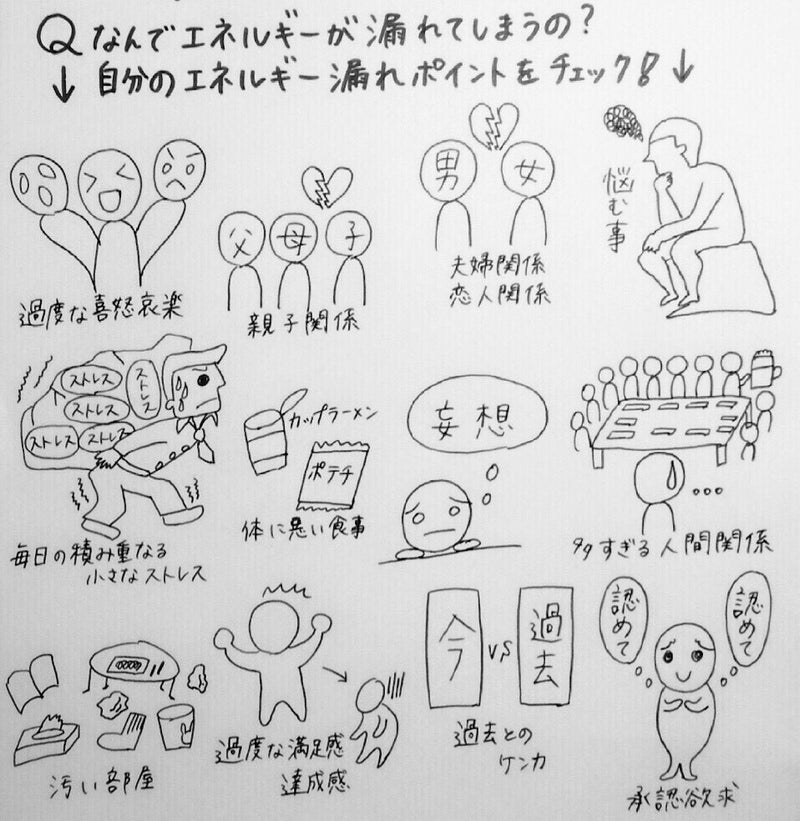 Q なんでエネルギーが漏れてしまうの?
↓ 自分のエネルギー漏れポイントをチェック! ↓
過度な喜怒哀楽
父 母 子
親子関係
男 女
夫婦関係
恋人関係
悩む事
ストレス
ストレス
ストレス
ストレス ストレス
毎日の積み重なる
小さなストレス
カップラーメン
ポテチ
体に悪い食事
妄想
...
多すぎる人間関係
汚い部屋
過度な満足感
達成感
今 VS 過去
過去との
ケンカ
認めて
認めて
承認欲求